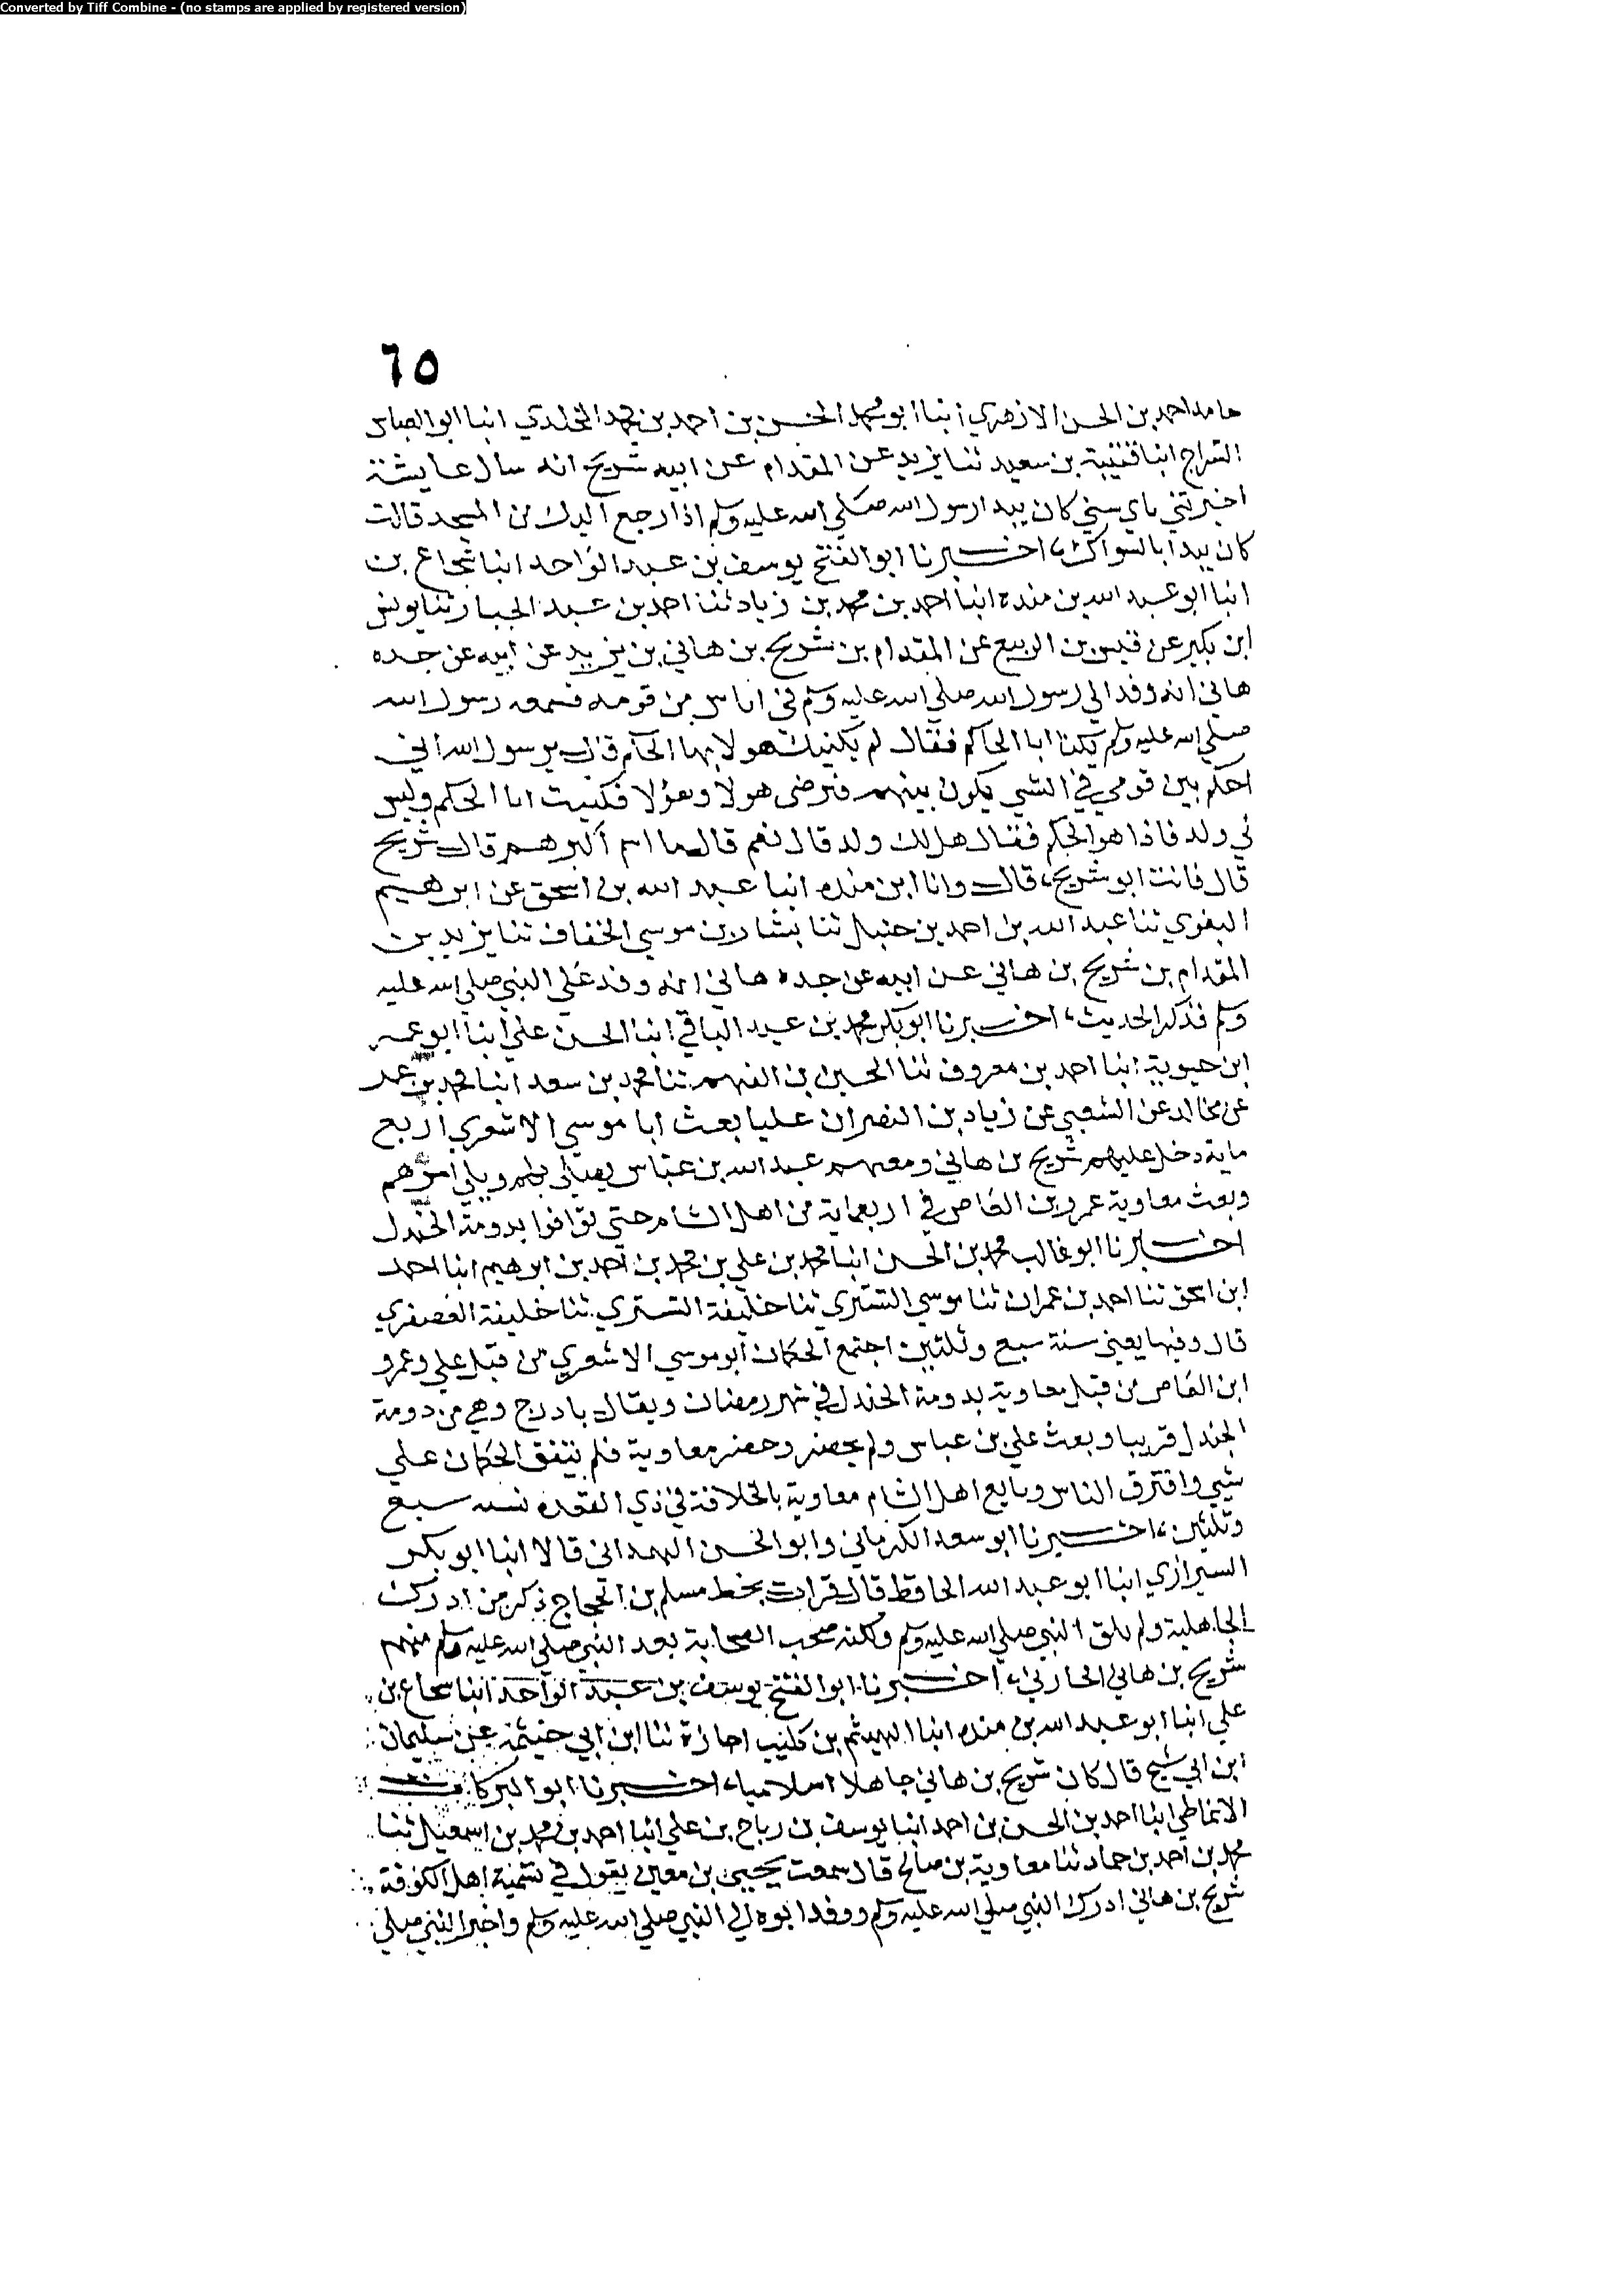 Converted by Tiff Combine - (no stamps are applied by registered version)
٦٥
حامد احمد بن الحسن الازهري انبا ابو محمد الحسن بن احمد بن محمد المخلدي انبا ابو العباس
السراج انبا قتيبة بن سعيد ثنا يزيد عن المقدام عن ابيه شريح انه سال عايشة
اخبرتني باي شي كان يبدا رسول الله صلي الله عليه وسلم اذا رجع اليك من المسجد قالت
كان يبدا بالسواك، اخبرنا ابو الفتح يوسف بن عبد الواحد انبا شجاع بن
انبا ابو عبد الله بن منده انبا احمد بن محمد بن زياد ثنا احمد بن عبد الجبار ثنا يونس
ابن بكير عن قيس بن الربيع عن المقدام بن شريح بن هاني بن يزيد عن ابيه عن جده
هاني انه وفد الي رسول الله صلي الله عليه وسلم في اناس من قومه فسمعه رسول الله
صلي الله عليه وسلم يكنا ابا الحاكم فقال لم يكنيك هولا بها الحكم قال يرسول الله اني
احكم بين قومي في الشي يكون بينهم فنرضى هولا وهؤلا فكنيت ابا الحكم وليس
لي ولد فاذا هو الحكم فقال هل لك ولد قال نعم قال ما اسم اكبرهم قال شريح
قال فانت ابو شريح، قال وانا ابن منده انبا عبد الله بن اسحق عن ابرهيم
البغوي ثنا عبد الله بن احمد بن حنبل ثنا بشار بن موسي الخفاف ثنا يزيد بن
المقدام بن شريح بن هاني عن ابيه عن جده هاني انه وفد علي النبي صلي الله عليه
وسلم فذكر الحديث، اخبرنا ابو بكر محمد بن عبد الباقي انبا الحسن علي انبا ابو عمر
ابن حيوية انبا احمد بن معروف ثنا الحسين بن الفهم ثنا محمد بن سعد انبا محمد بن عمر
عن مخالد عن الشعبي عن زياد بن النضر ان عليا بعث ابا موسي الاشعري اربع
ماية دخل عليهم شريح بن هاني ومعهم عبد الله بن عباس يصلي بهم ويلي امرهم
وبعث معاوية عمرو بن العاص في اربعماية من اهل الشام حتي توافوا بدومة الجندل
اخبرنا ابو غالب محمد بن الحسن انبا محمد بن علي بن محمد بن احمد بن ابرهيم انبا احمد
ابن اسحق ثنا احمد بن عمران ثنا موسي التستري ثنا خليفة التستري ثنا خليفة العصفري
قال وفيها يعني سنة سبع وثلثين اجتمع الحكمان ابو موسي الاشعري من قبل علي وعمرو
ابن العاص من قبل معاوية بدومة الجندل في شهر رمضان ويقال بادرج وهي من دومة
الجندل قريبا وبعث علي بن عباس ولم يحضر وحضر معاوية فلم يتفق الحكمان علي
شيي وافترق الناس وبايع اهل الشام معاوية بالخلافة في ذي القعدة سنه سبع
وثلثين، اخبرنا ابو سعد الكرماني وابو الحسن الهمداني قالا انبا ابو بكر
السيرازي انبا ابو عبد الله الحافظ قال قرات بخط مسلم بن الحجاج ذكر من ادرك
الجاهلية ولم يلق النبي صلي الله عليه وسلم ولكنه صحب الصحابة بعد النبي صلي الله عليه وسلم منهم
شريح بن هاني الحارثي، اخبرنا ابو الفتح يوسف بن عبد الواحد انبا شجاع بن
علي انبا ابو عبد الله بن منده انبا الهيثم بن كليب اجازة ثنا ابن ابي خيثمة عن سليمان
ابن ابي شيخ قال كان شريح بن هاني جاهلا اسلاميا، اخبرنا ابو البركات
الانماطي انبا احمد بن الحسن بن احمد انبا يوسف بن رباح بن علي انبا احمد بن محمد بن اسمعيل ثنا
محمد بن احمد بن حماد ثنا معاوية بن صالح قال سمعت يحيى بن معين يقول في تسمية اهل الكوفة
شريح بن هاني ادرك النبي صلي الله عليه وسلم ووفد ابوه الي النبي صلي الله عليه وسلم واخبر النبي صلي